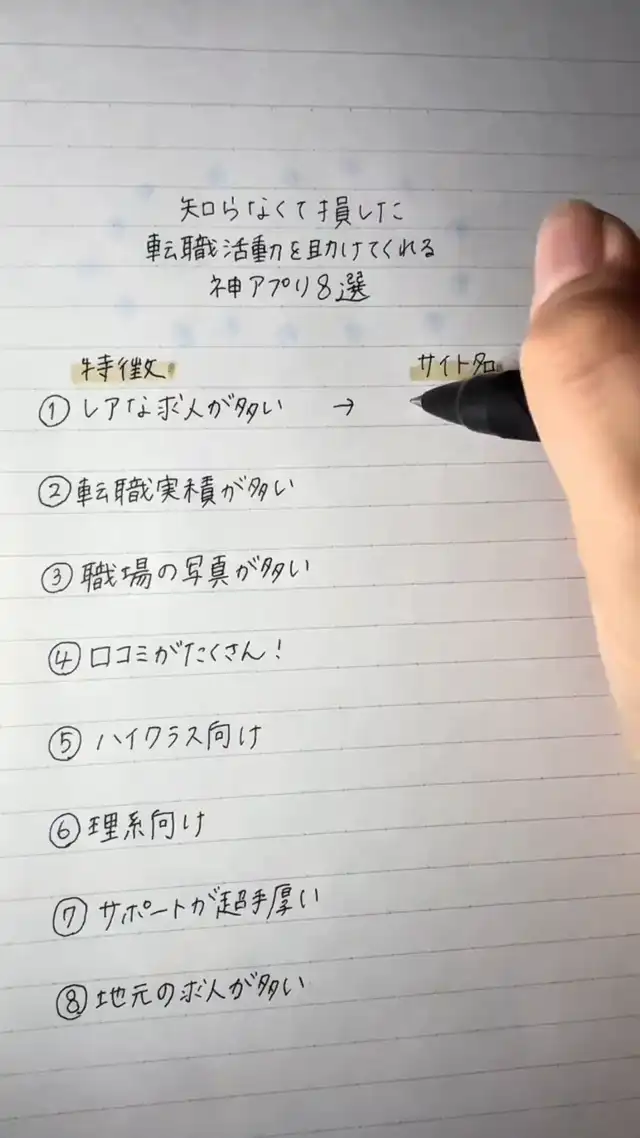 知らなくて損した
転職活動を助けてくれる
神アプリ8選
特徴 サイト名
①レアな求人が多い →
②転職実積が多い
③職場の写真が多い
④口コミがたくさん!
⑤ハイクラス向け
⑥理系向け
⑦サポートが超手厚い
⑧地元の求人が多い